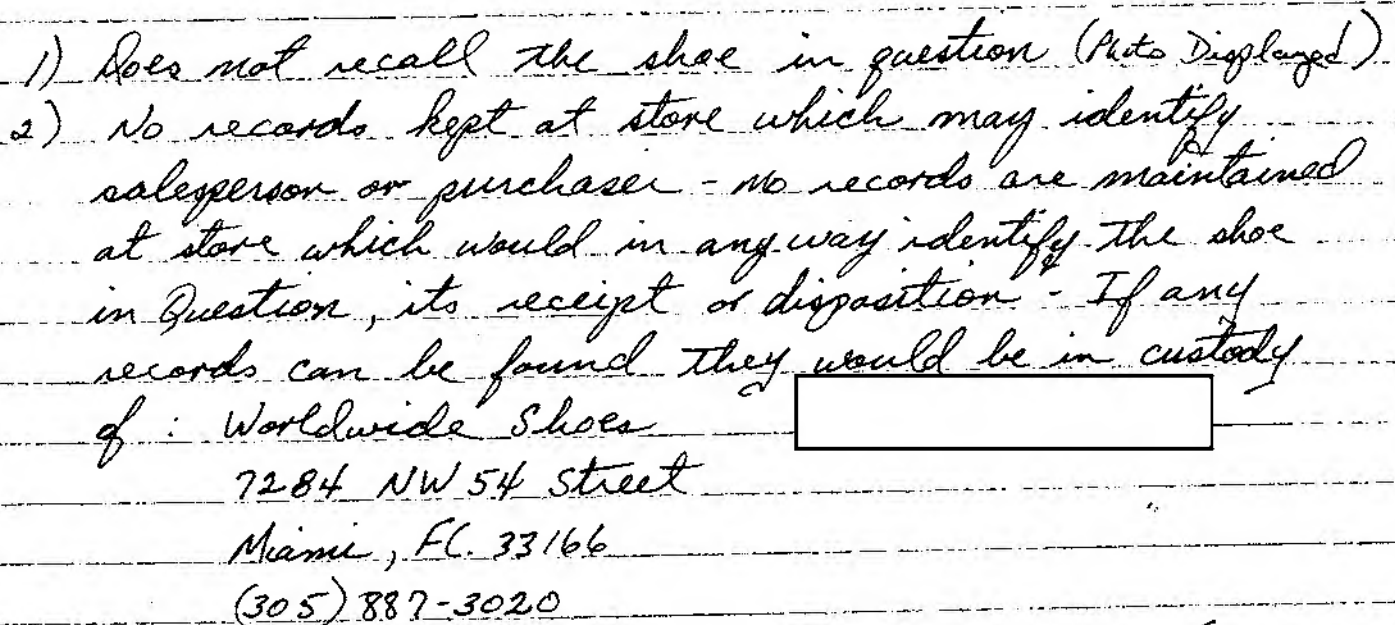 1) Does not recall the shoe in question (Photo Displayed)
2) No records kept at store which may identify
salesperson or purchaser - no records are maintained
at store which would in any way identify the shoe
in Question, its receipt or disposition - If any
records can be found they would be in custody
of : Worldwide Shoes
7284 NW 54 Street
Miami, FL. 33166
(305) 887-3020